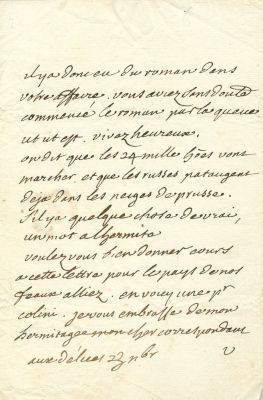 il ya donc eu du roman dans
votre affaire. vous aviez sans doute
commencé le roman par la queue
ut ut est. vivez heureux.
on dit que les 24 mille h̃es vont
marcher et que les russes pataugent
deja dans les neiges de prusse.
s'il ya quelque chose de vrai,
un mot a lhermite
voulez vous bien donner cours
a cette lettre pour le pays de nos
feaux alliez. en voicy une pr
colini. je vous embrasse de mon
hermitage mon cher correspondant
aux délices 23 nbr
V